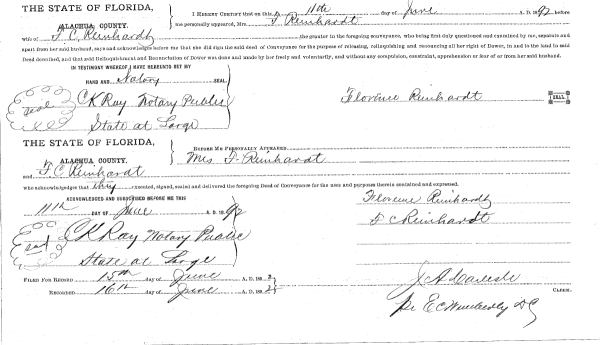 THE STATE OF FLORIDA,
ALACHUA COUNTY.
I HEREBY CERTIFY that on this 11th day of June A. D. 1892 before
me personally appeared, Mrs. F. Reinhardt
wife of F. C. Reinhardt the grantor in the foregoing conveyance, who being first duly questioned and examined by me, separate and
apart from her said husband, says and acknowledges before me that she did sign the said deed of Conveyance for the purpose of releasing, relinquishing and renouncing all her right of Dower, in and to the land in said
Deed described, and that said Relinquishment and Renunciation of Dower was done and made by her freely and voluntarily, and without any compulsion, constraint, apprehension or fear of or from her said husband.
IN TESTIMONY WHEREOF I HAVE HEREUNTO SET MY
HAND AND Notary SEAL.
Seal
C K Ray Notary Public
State at Large
Florence Reinhardt SEAL
THE STATE OF FLORIDA,
ALACHUA COUNTY.
BEFORE ME PERSONALLY APPEARED
Mrs F. Reinhardt
and F. C Reinhardt
who acknowledges that they executed, signed, sealed and delivered the foregoing Deed of Conveyance for the uses and purposes therein contained and expressed.
ACKNOWLEDGED AND SUBSCRIBED BEFORE ME THIS
11th DAY OF June A. D. 1892
Florence Reinhardt
F C Reinhardt
Seal
C K Ray Notary Public
State at Large
FILED FOR RECORD 15th day of June A. D. 1892
RECORDED 16th day of June A. D. 1892
J A Carlisle CLERK.
pr E C Wimberly D C